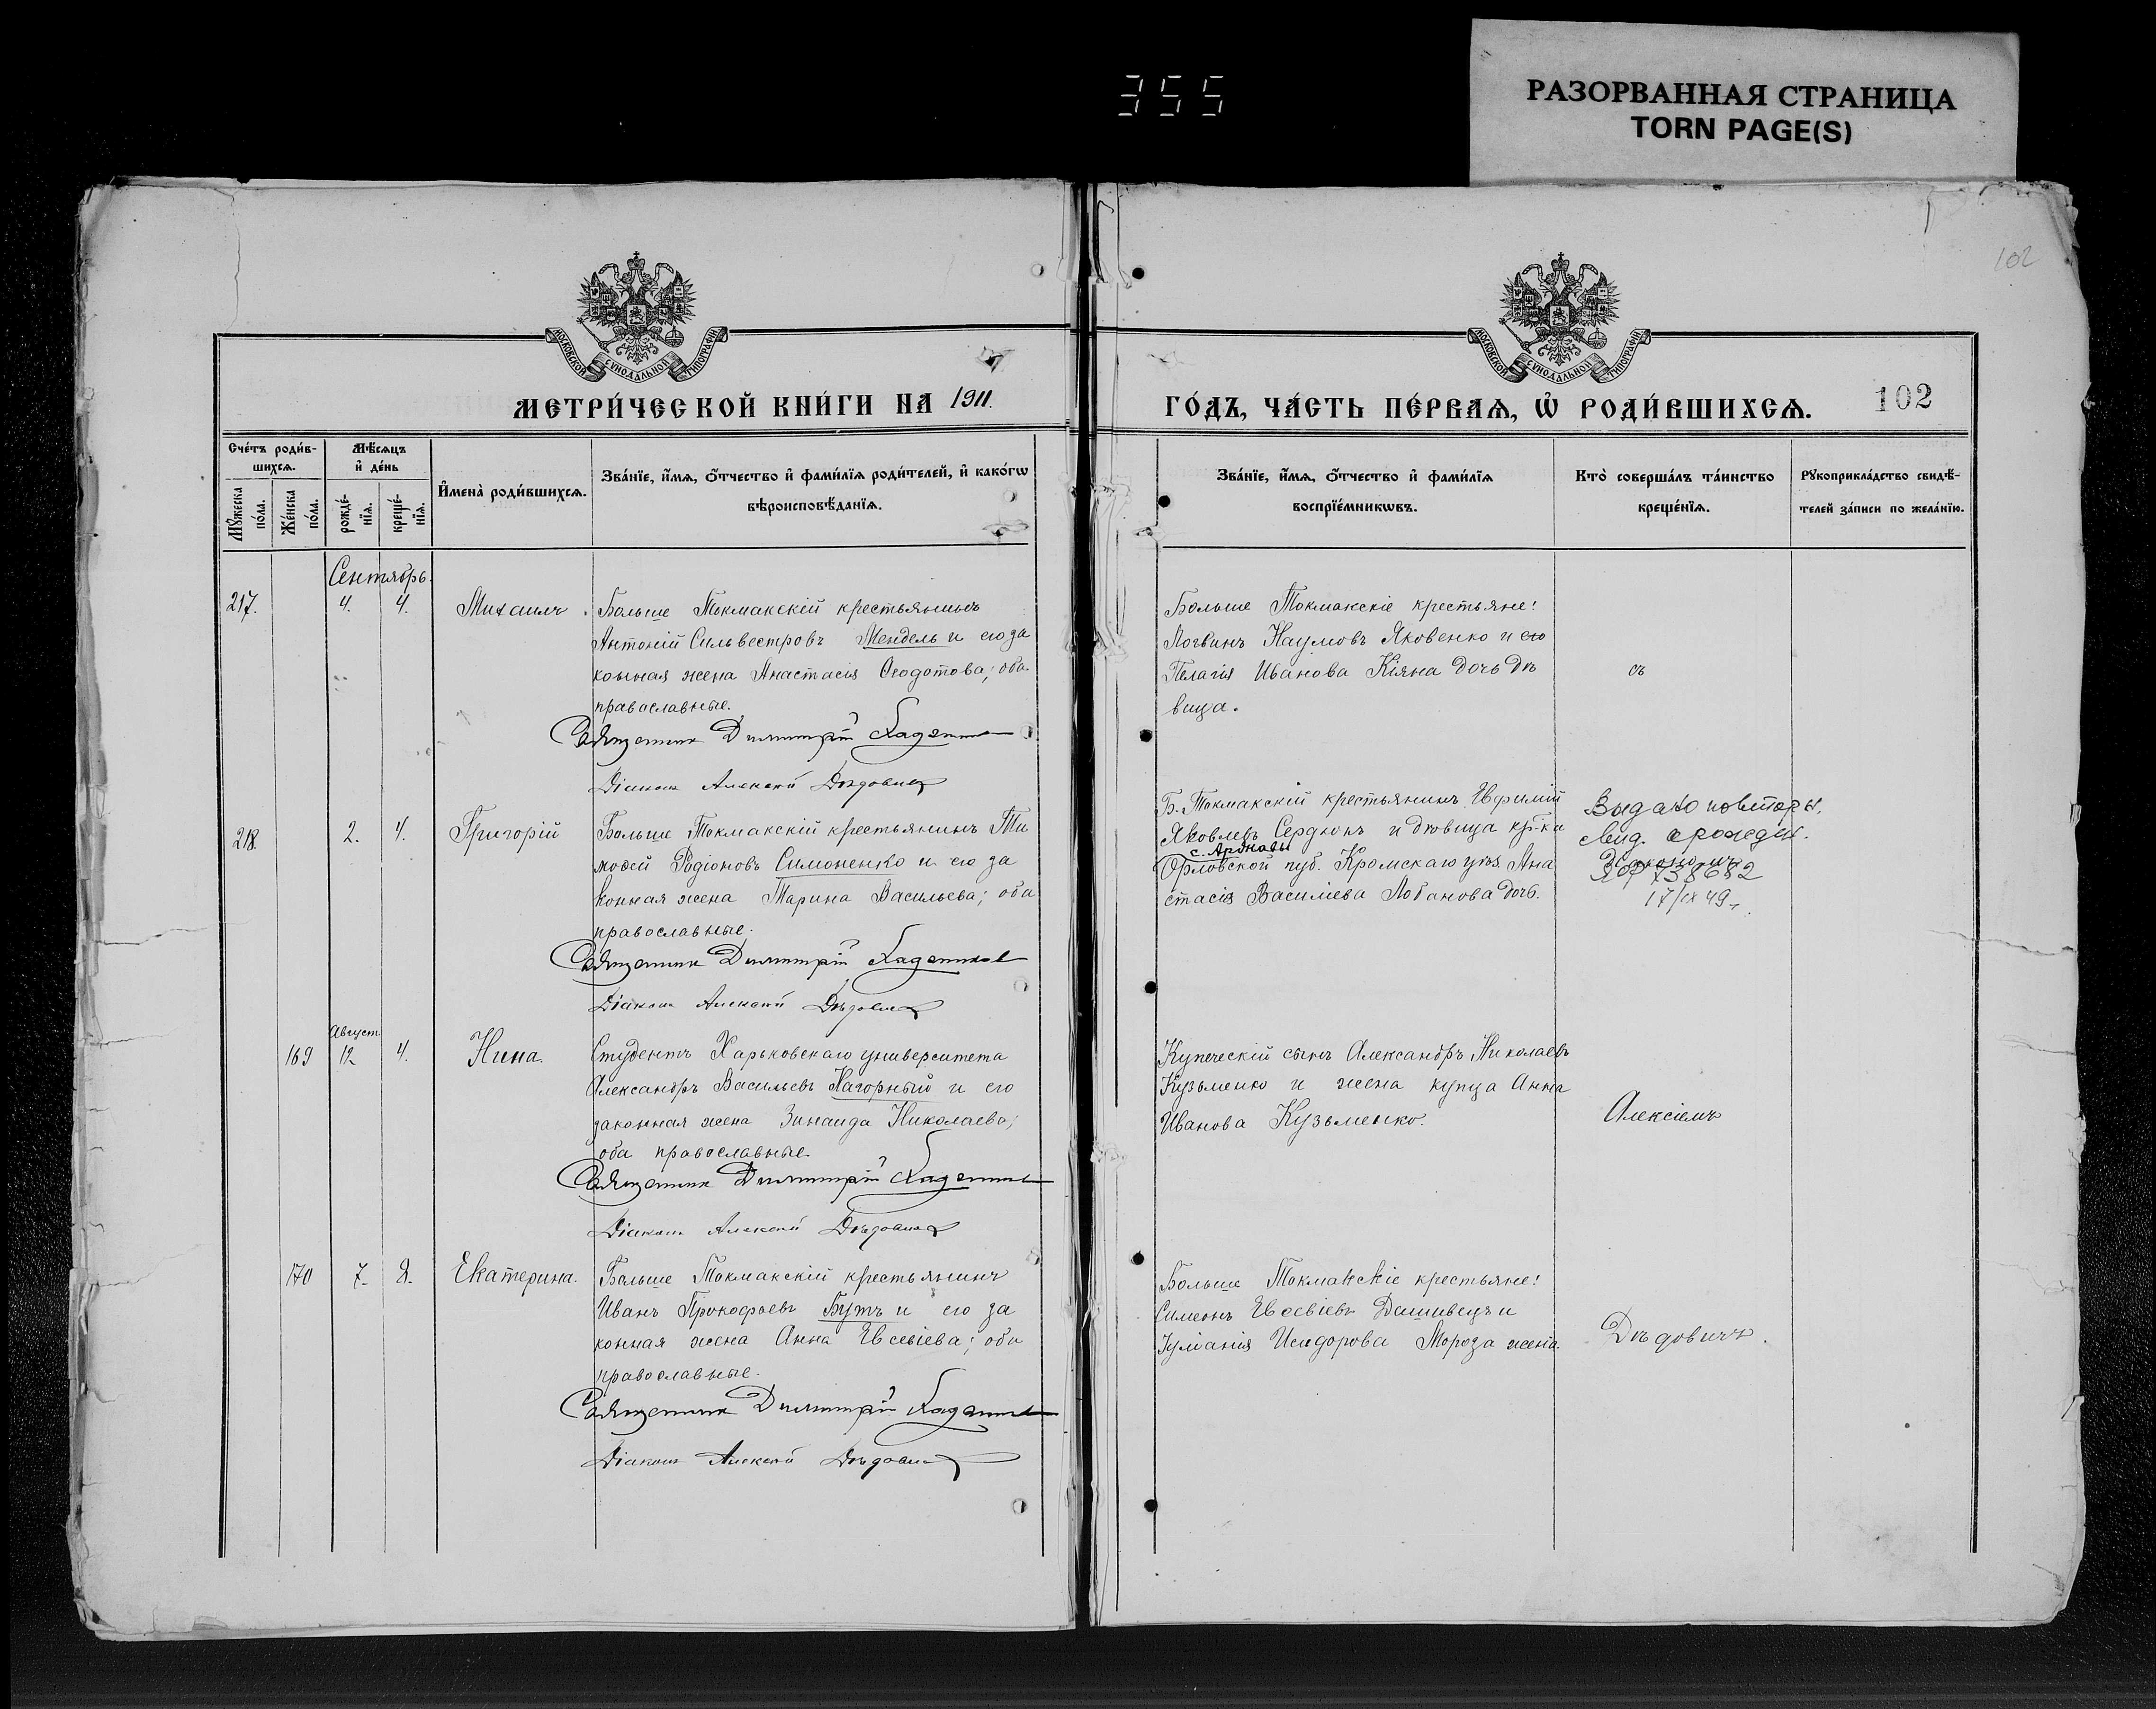 355
РАЗОРВАННАЯ СТРАНИЦА
TORN PAGE(S)
102
МОСКОВСКОЙ СѴНОДАЛЬНОЙ ТИПОГРАФІИ
МОСКОВСКОЙ СѴНОДАЛЬНОЙ ТИПОГРАФІИ
МЕТРИ́ЧЕСКОЙ КНИ́ГИ НА 1911.
ГО́ДЪ, ЧА́СТЬ ПЕ́РВАЯ, Ѡ҆ РОДИ́ВШИХСЯ.
102
Сче́тъ роди́в-
шихся.
Мѣ́сяцъ
и҆ де́нь
Мꙋ́жеска
по́ла.
Же́нска
по́ла.
рожде́-
нїя.
креще́-
нїя.
И҆мена̀ роди́вшихся.
Зва́нїе, и҆́мя, ѻ҆́тчество и҆ фами́лїя роди́телей, и҆ како́гѡ
вѣроисповѣ́данїя.
Зва́нїе, и҆́мя, ѻ҆́тчество и҆ фами́лїя
воспрїе́мникѡвъ.
Кто̀ соверша́лъ та́инство
креще́нїя.
Рꙋкоприкла́дство свидѣ́-
телей за́писи по жела́нїю.
Сентябрь.
217.
4.
4.
Михаилъ.
Больше Токмакскій крестьянинъ
Антоній Сильвестровъ Мендель и его за
конная жена Анастасія Ѳеодотова; оба
православные.
Священник Димитрій
Діаконъ Алексѣй Дѣдовичъ
Больше Токмакскіе крестьяне:
Логвинъ Наумовъ Яковенко и его
Пелагія Иванова Кіяна дочь дѣ
вица.
съ
218.
2.
4.
Григорій
Больше Токмакскій крестьянинъ Ти
моѳей Родіоновъ Симоненко и его за
конная жена Марина Васильева; оба
православные.
Священник Димитрій
Діаконъ Алексѣй Дѣдовичъ
Б. Токмакскій крестьянинъ Евфимій
Яковлевъ Сердюкъ и дѣвица кр-ка
Орловской губ. Кромскаго уѣз. Ана
стасія Василіева Лобанова дочь.
Выдано повтор.
свид. о рожден.
Діакономъ
738682
17/IX 49 г.
169
Август
12
4.
Нина.
Студентъ Харьковскаго университета
Александръ Васильевъ Нагорный и его
законная жена Зинаида Николаева;
оба православные.
Священник Димитрій
Діаконъ Алексѣй Дѣдовичъ
Купеческій сынъ Александръ Николаевъ
Кузьменко и жена купца Анна
Иванова Кузьменко.
Алексіемъ
170
7.
8.
Екатерина.
Больше Токмакскій крестьянинъ
Иванъ Прокофьевъ Бутъ и его за
конная жена Анна Евсевіева; оба
православные.
Священник Димитрій
Діаконъ Алексѣй Дѣдовичъ
Больше Токмакскіе крестьяне:
Симеонъ Евсевіевъ Дашивецъ и
Іуліанія Исидорова Мороза жена.
Дѣдовичъ.